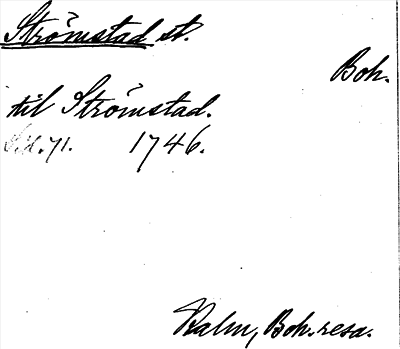 Strömstad st.
Boh.
til Strömstad.
S. 71. 1746.
Kalm, Boh. resa.